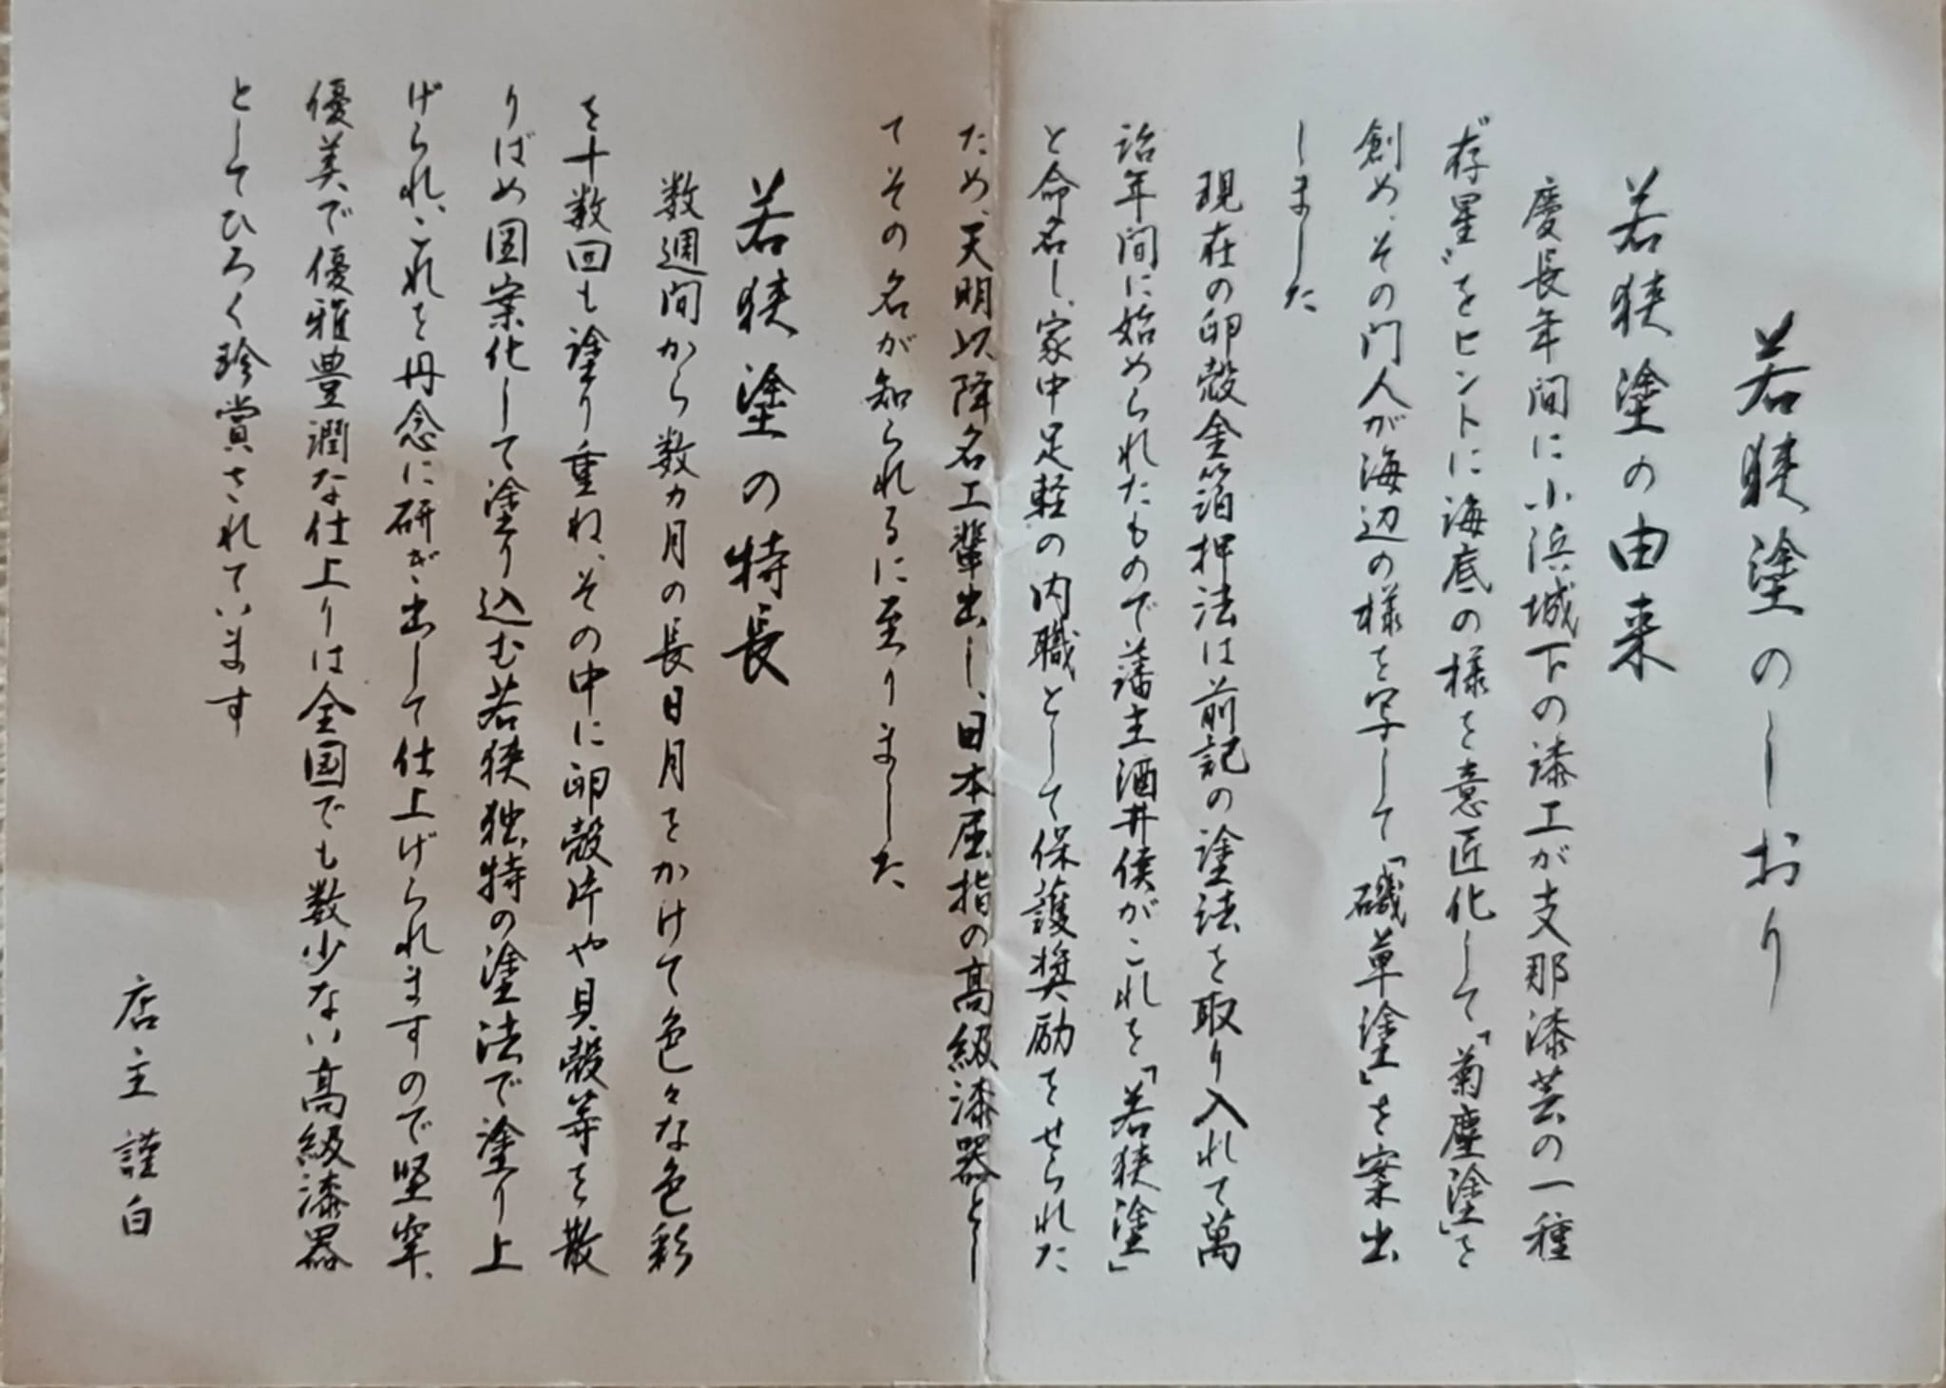 若狭塗のしおり
若狭塗の由来
慶長年間に小浜城下の漆工が支那漆芸の一種
〝存星〟をヒントに海底の様を意匠化して「菊塵塗」を
創め、その門人が海辺の様を写して「磯草塗」を案出
しました
現在の卵殻金箔押法は前記の塗法を取り入れて萬
治年間に始められたもので藩主酒井侯がこれを「若狭塗」
と命名し、家中足軽の内職として保護奨励をせられた
ため、天明以降名工輩出し、日本屈指の高級漆器とし
てその名が知られるに至りました
若狭塗の特長
数週間から数ヵ月の長日月をかけて色々な色彩
を十数回も塗り重ね、その中に卵殻片や貝殻等を散
りばめ図案化して塗り込む若狭独特の塗法で塗り上
げられ、これを丹念に研ぎ出して仕上げられますので堅牢、
優美で優雅豊潤な仕上りは全国でも数少ない高級漆器
としてひろく珍賞されています
店主 謹白